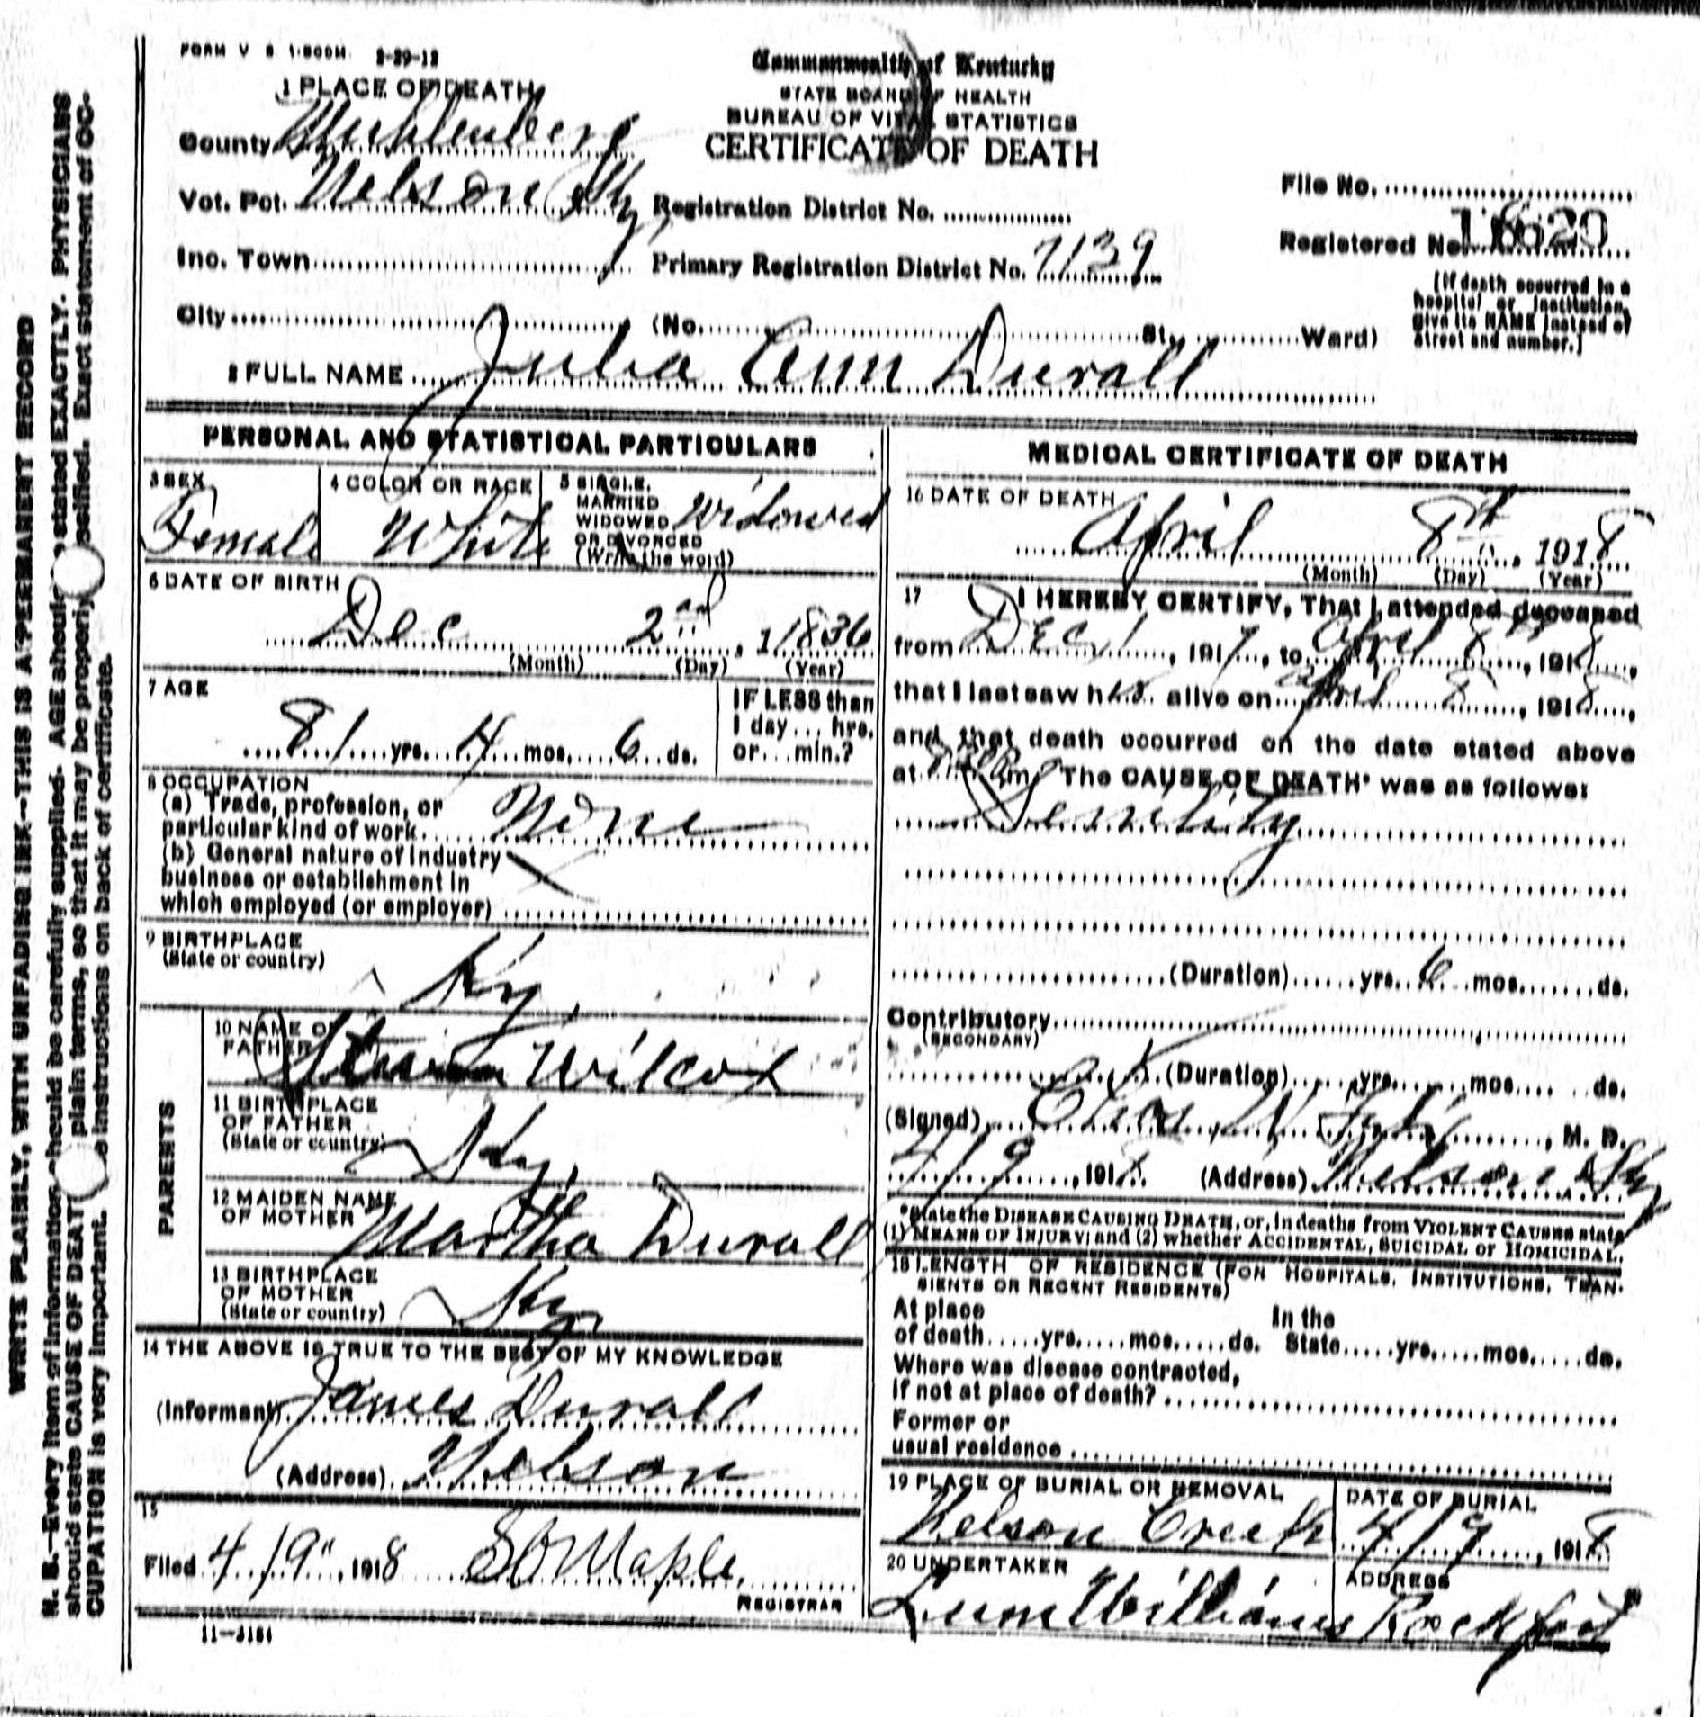 FORM V S 1-500M 2-29-12
Commonwealth of Kentucky
STATE BOARD OF HEALTH
BUREAU OF VITAL STATISTICS
CERTIFICATE OF DEATH
1 PLACE OF DEATH
County Muhlenberg
Vot. Pct. Nelson Ky
Registration District No.
File No.
Inc. Town
Primary Registration District No. 7139
Registered No.
City (No. St. Ward)
(If death occurred in a
hospital or institution,
give its NAME instead of
street and number.)
2 FULL NAME Julia Ann Duvall
PERSONAL AND STATISTICAL PARTICULARS
3 SEX
Female
4 COLOR OR RACE
White
5 SINGLE,
MARRIED
WIDOWED
OR DIVORCED
(Write the word)
Widowed
6 DATE OF BIRTH
Dec 2nd, 1836
(Month) (Day) (Year)
7 AGE
81 yrs. 4 mos. 6 ds.
IF LESS than
1 day... hrs.
or...min.?
8 OCCUPATION
(a) Trade, profession, or
particular kind of work. None
(b) General nature of Industry
business or establishment in
which employed (or employer)
9 BIRTHPLACE
(State or country)
Ky.
PARENTS
10 NAME OF
FATHER
Wilcox
11 BIRTHPLACE
OF FATHER
(State or country)
Ky.
12 MAIDEN NAME
OF MOTHER
Martha Duvall
13 BIRTHPLACE
OF MOTHER
(State or country)
Ky
14 THE ABOVE IS TRUE TO THE BEST OF MY KNOWLEDGE
(Informant) James Duvall
(Address) Nelson
15
Filed 4/9", 1918 Maple
REGISTRAR
11-3184
MEDICAL CERTIFICATE OF DEATH
16 DATE OF DEATH
April 8th, 1918
(Month) (Day) (Year)
17 I HEREBY CERTIFY, That I attended deceased
from Dec 1, 1917, to April 8, 1918,
that I last saw her alive on April 8, 1918,
and that death occurred on the date stated above
at m. The CAUSE OF DEATH* was as follows:
Senility
(Duration) yrs. 6 mos. ds.
Contributory
(SECONDARY)
(Duration) yrs. mos. ds.
(Signed) , M. D.
4/9, 1918. (Address) Nelson Ky
*State the DISEASE CAUSING DEATH, or, in deaths from VIOLENT CAUSES state
(1) MEANS OF INJURY; and (2) whether ACCIDENTAL, SUICIDAL or HOMICIDAL.
18 LENGTH OF RESIDENCE (FOR HOSPITALS, INSTITUTIONS, TRAN-
SIENTS OR RECENT RESIDENTS)
At place
of death.....yrs.....mos.....ds.
In the
State.....yrs.....mos.....ds.
Where was disease contracted,
if not at place of death?
Former or
usual residence
19 PLACE OF BURIAL OR REMOVAL
Nelson Creek
DATE OF BURIAL
4/9, 1918
20 UNDERTAKER
Lum Williams
ADDRESS
Rockport
WRITE PLAINLY, WITH UNFADING INK—THIS IS A PERMANENT RECORD
N. B.—Every item of information should be carefully supplied. AGE should stated EXACTLY. PHYSICIANS
should state CAUSE OF DEATH plain terms, so that it may be properly Exact statement of OC-
CUPATION is very important. instructions on back of certificate.